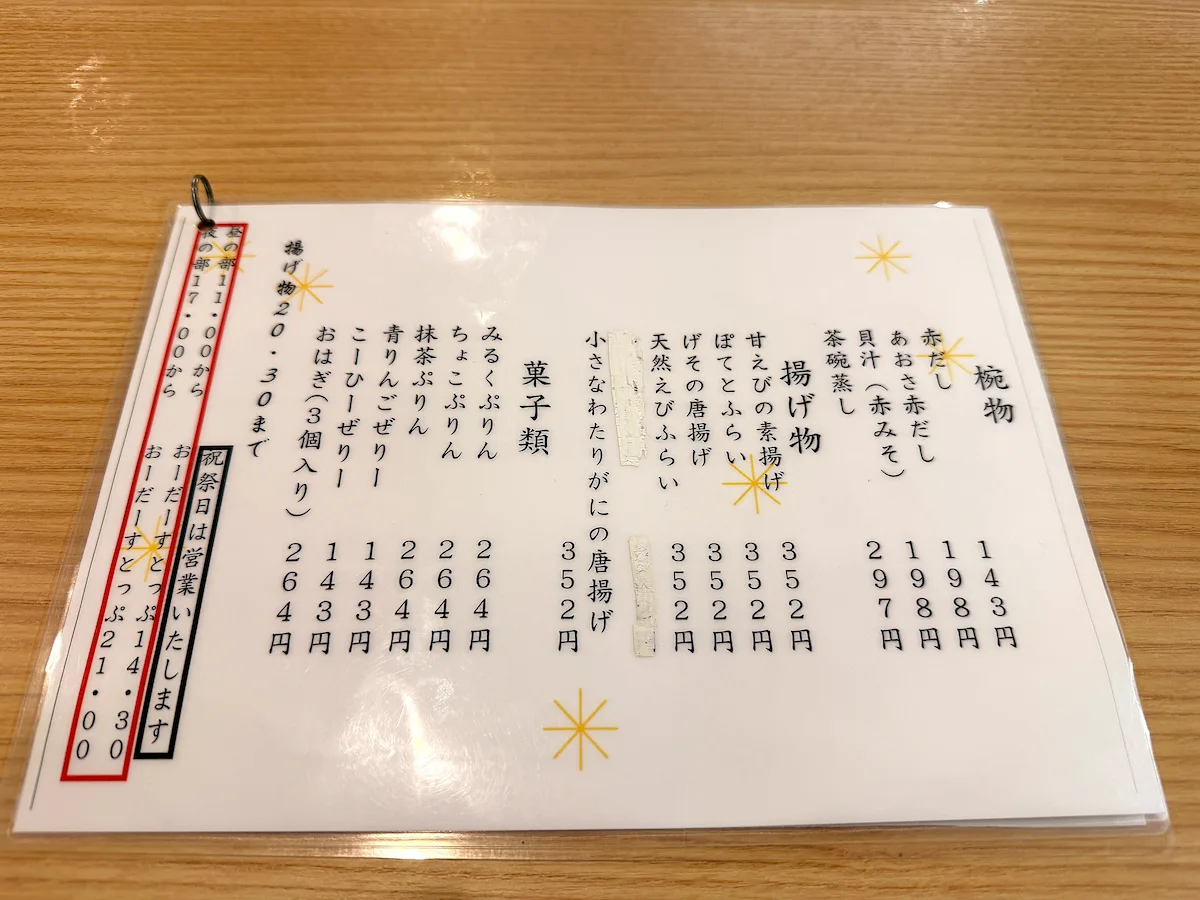 椀物
赤だし 143円
あおさ赤だし 198円
貝汁（赤みそ） 198円
茶碗蒸し 297円
揚げ物
甘えびの素揚げ 352円
ぽてとふらい 352円
げその唐揚げ 352円
天然えびふらい 352円
小さなわたりがにの唐揚げ 352円
菓子類
みるくぷりん 264円
ちょこぷりん 264円
抹茶ぷりん 264円
青りんごぜりー 143円
こーひーぜりー 143円
おはぎ（3個入り） 264円
揚げ物20・30まで
祝祭日は営業いたします
昼の部11・00から おーだーすとっぷ14・30
夜の部17・00から おーだーすとっぷ21・00